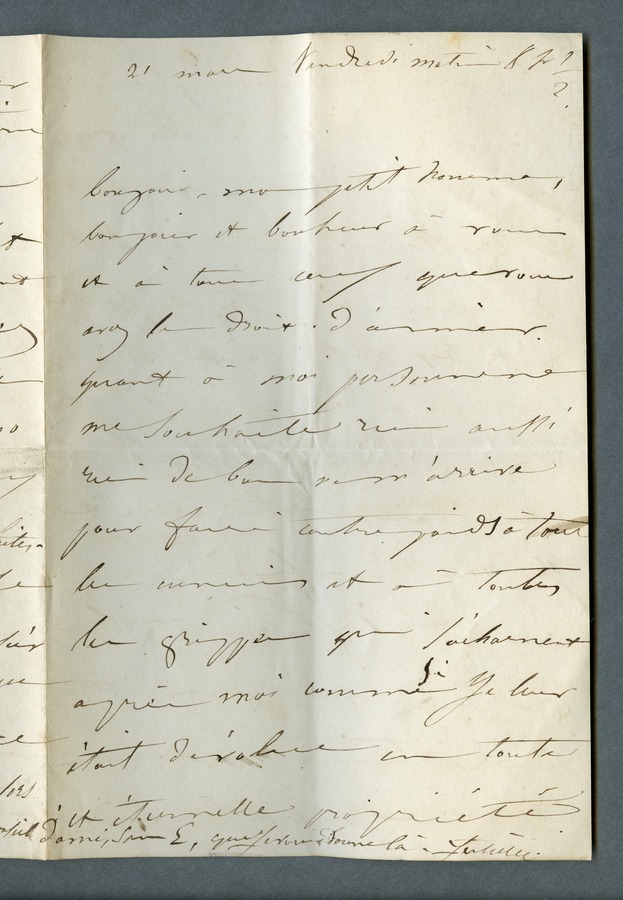 21 mars Vendredi matin 8 h 1/2
bonjour, mon petit homme,
bonjour et bonheur à vous
et à tous ceux que vous
avez le droit d'aimer.
quant à moi personne ne
me souhaite rien aussi
rien de bon ne m'arrive
pour faire contre poids à tous
les ennuis et à toutes
les grippes qui s'acharnent
après moi comme si je leur
étais dévolue en toute
et éternelle propriété